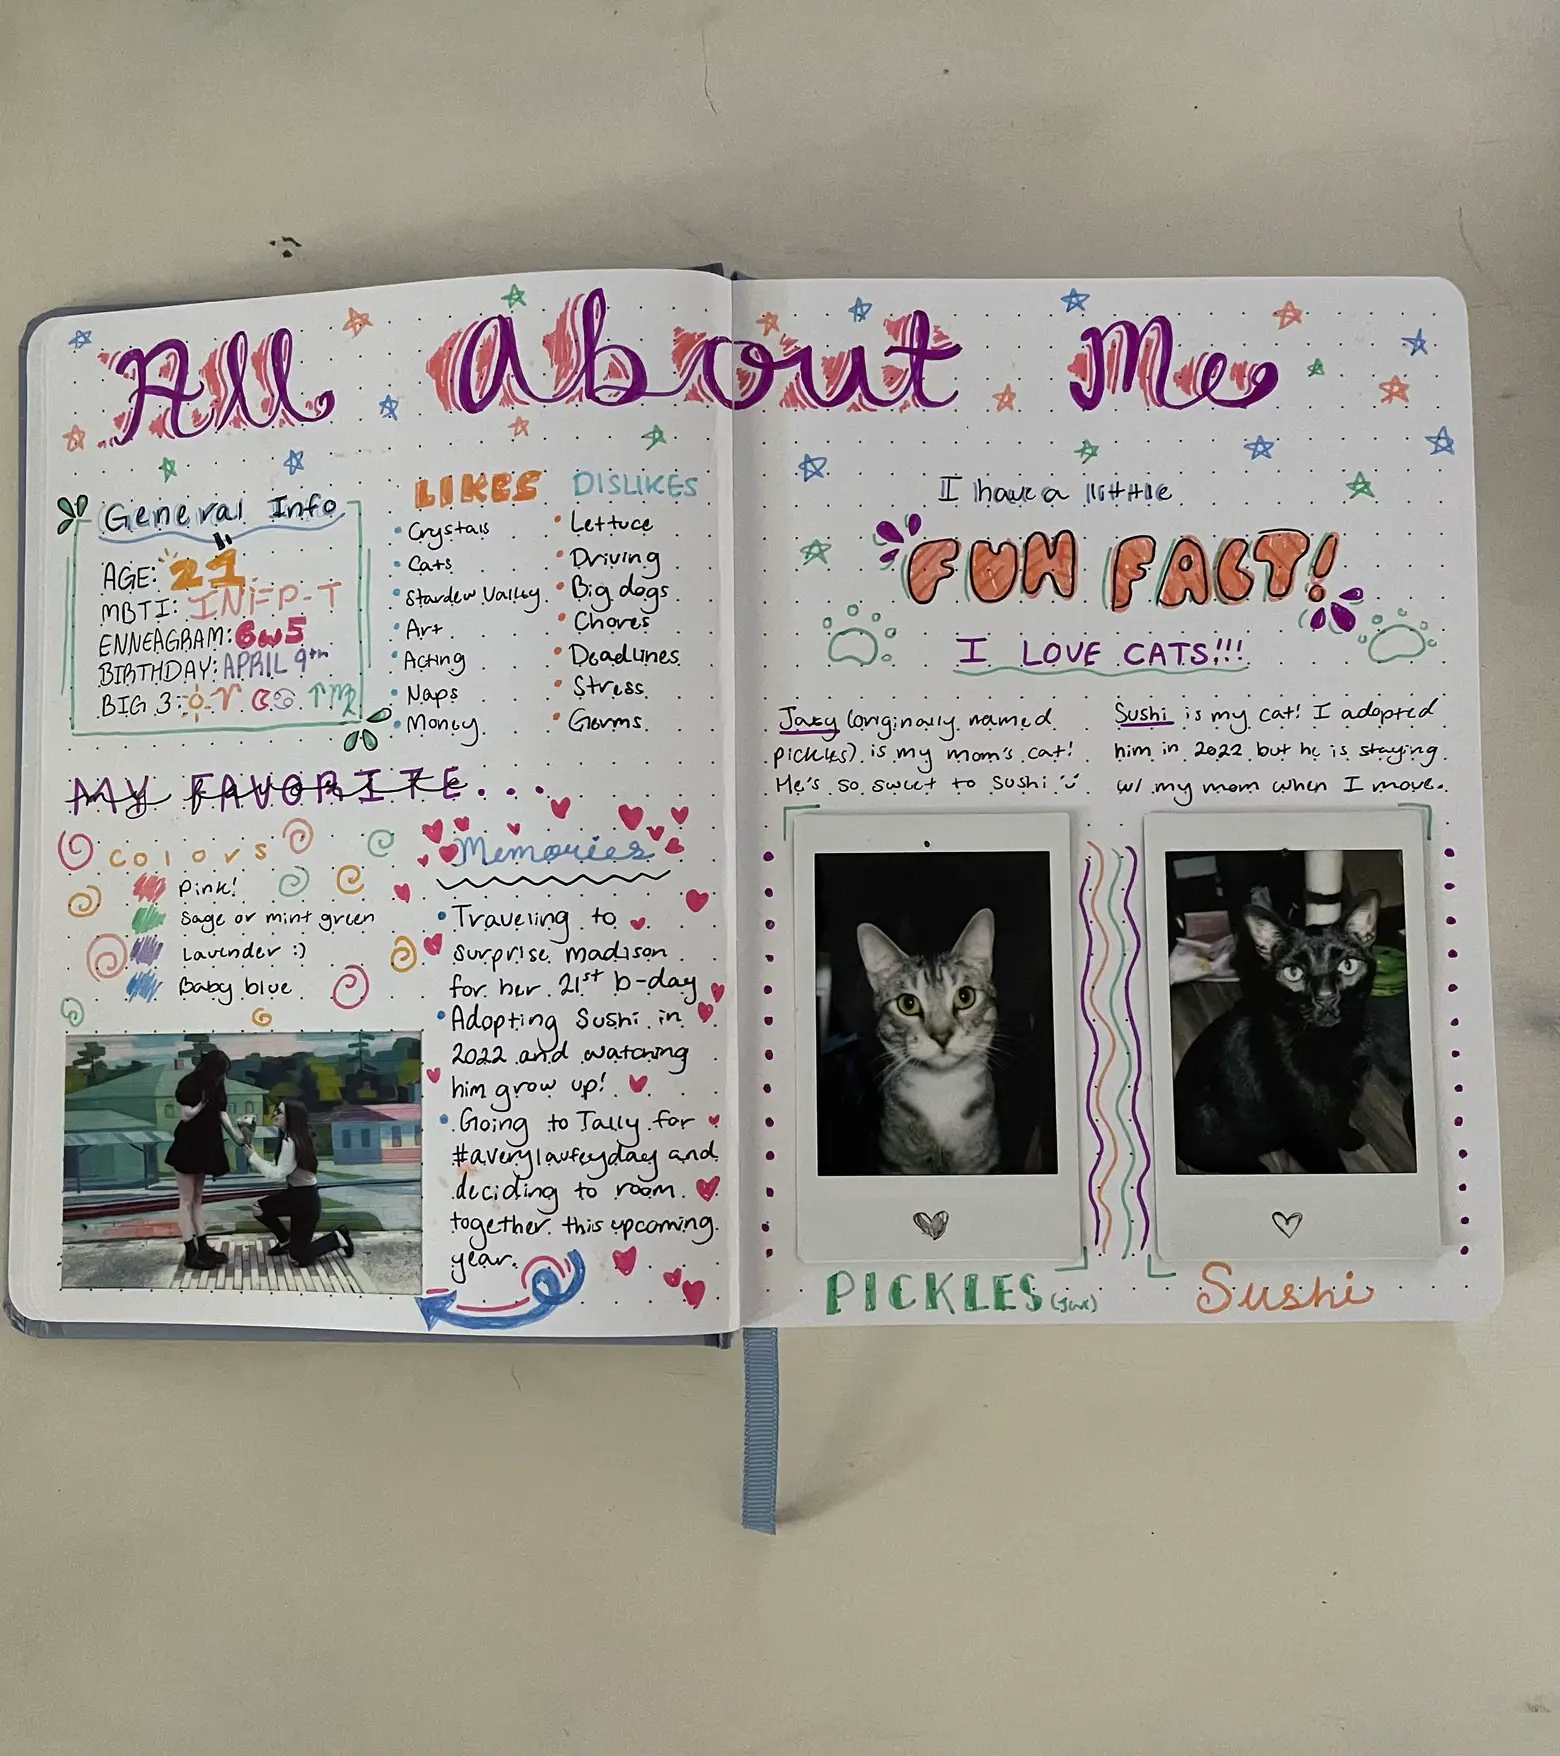 All About Me
General Info
AGE: 21
MBTI: INFP-T
ENNEAGRAM: 6w5
BIRTHDAY: APRIL 9th
BIG 3: ☼ ♈ ☾ ♋ ↑ ♍
LIKES
Crystals
Cats
Stardew Valley
Art
Acting
Naps
Money
DISLIKES
Lettuce
Driving
Big dogs
Chores
Deadlines
Stress
Germs
MY FAVORITE...
Colors
Pink!
Sage or mint green
Lavender :)
Baby blue
Memories
• Traveling to
surprise madison
for her 21st b-day
• Adopting Sushi in
2022 and watching
him grow up!
• Going to Tally for
#averylaufeyday and
deciding to room
together this upcoming
year.
I have a little
FUN FACT!
I LOVE CATS!!!
(originally named
pickles) is my mom's cat!
He's so sweet to Sushi :)
Sushi is my cat! I adopted
him in 2022 but he is staying
w/ my mom when I move.
PICKLES
Sushi